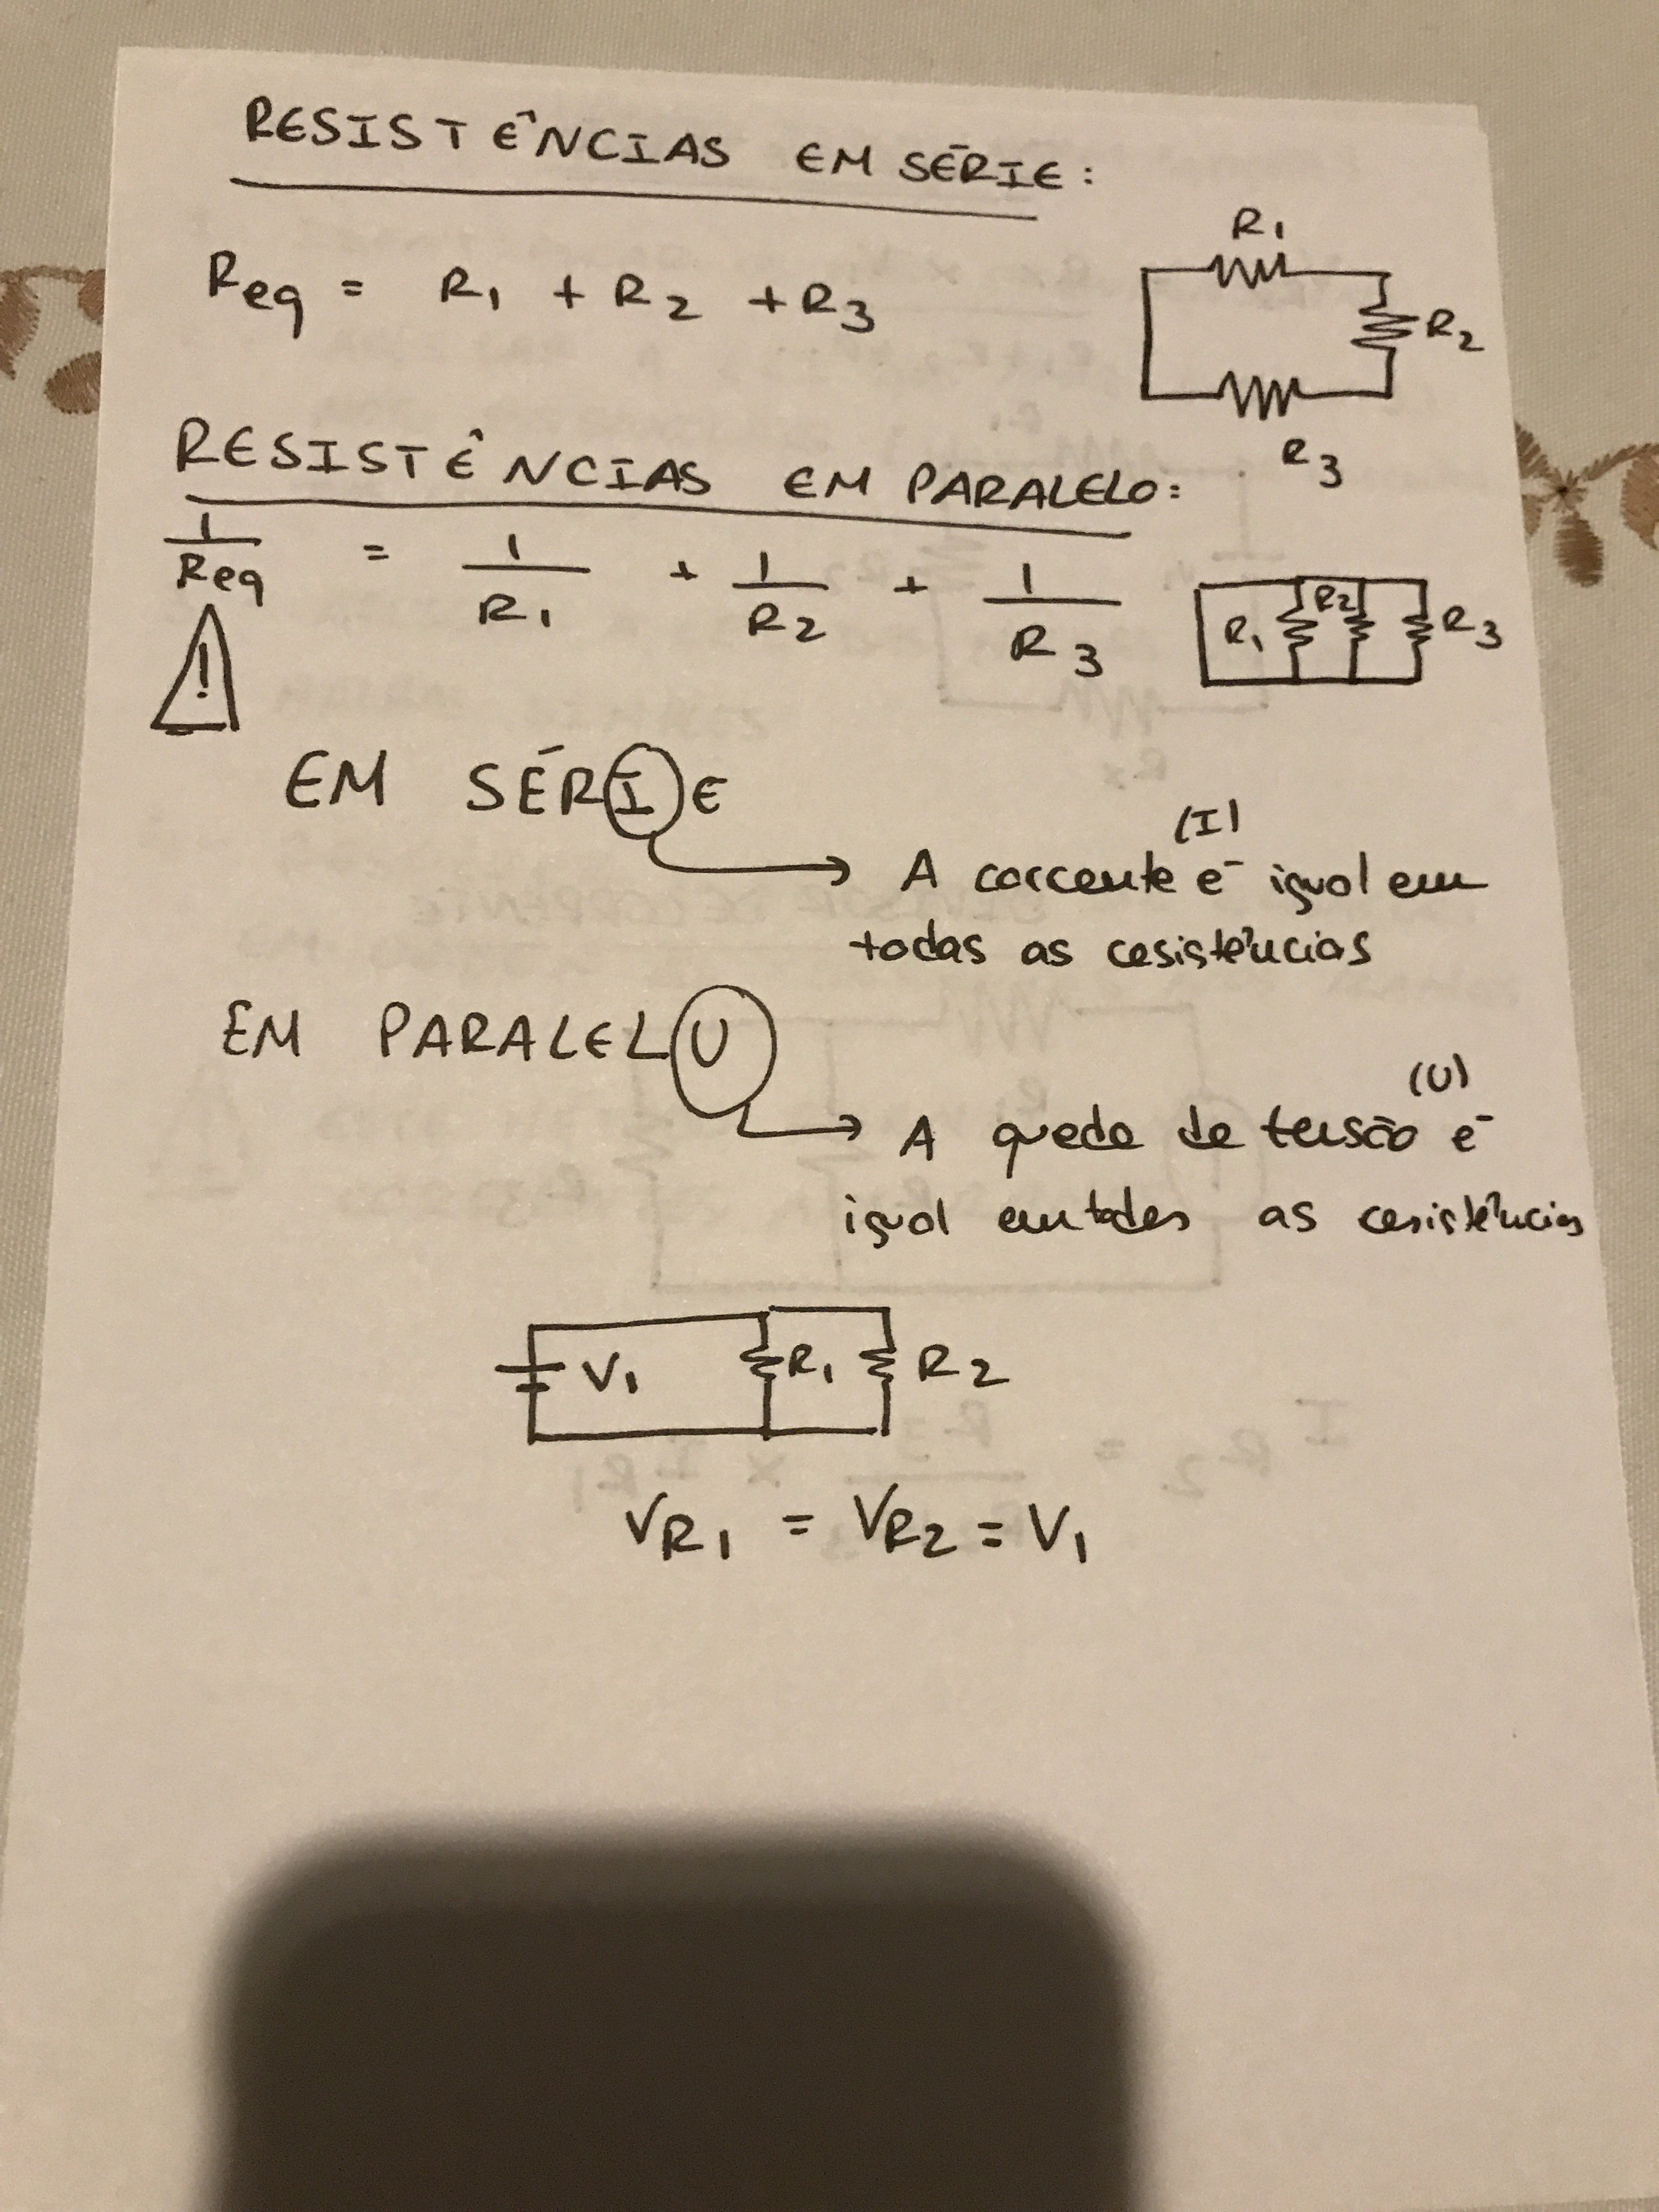 RESISTÊNCIAS EM SÉRIE:
Req = R1 + R2 + R3
R1
R2
R3
RESISTÊNCIAS EM PARALELO:
1/Req = 1/R1 + 1/R2 + 1/R3
R1 R2 R3
!
EM SÉRIE
(I)
A corrente é igual em
todas as resistências
EM PARALELU
(U)
A queda de tensão é
igual em todas as resistências
V1 R1 R2
VR1 = VR2 = V1